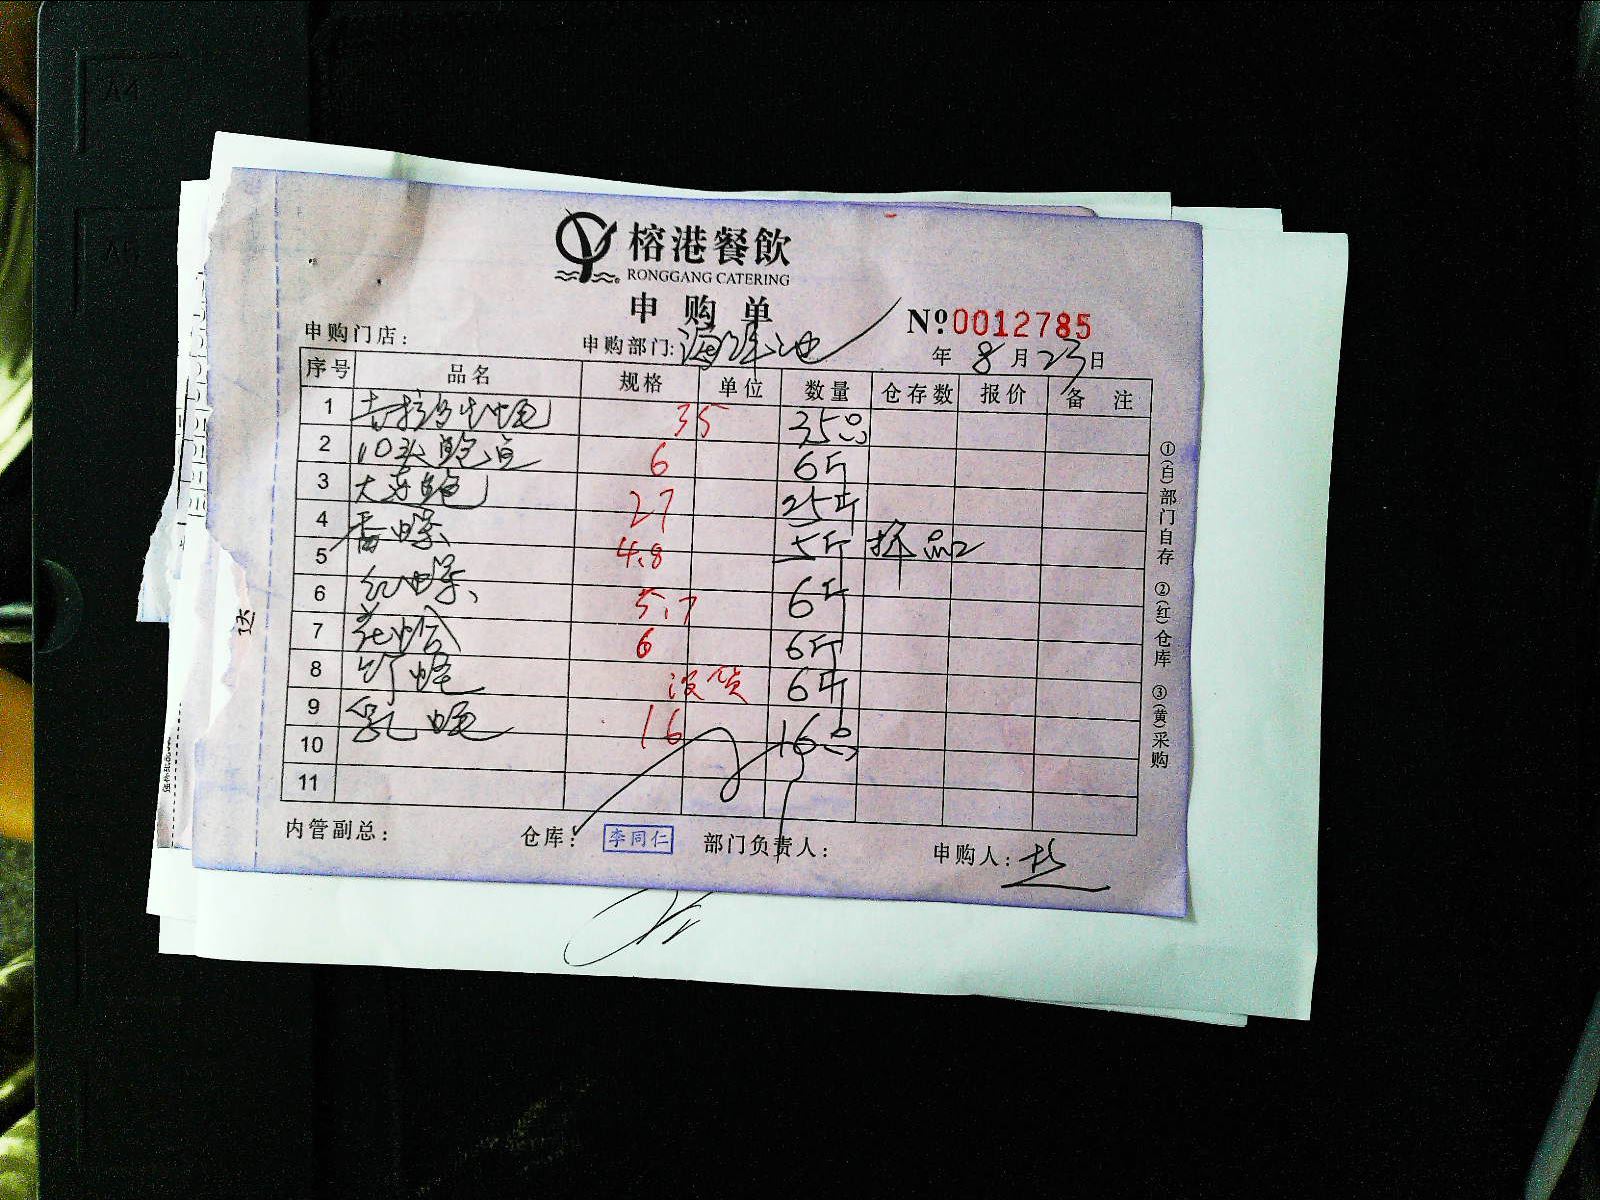 A4
A5
榕港餐飲
RONGGANG CATERING
申购单
Nº0012785
申购门店： 申购部门：海鲜池 年 8 月 23 日
序号 品名 规格 单位 数量 仓存数 报价 备 注
1 35 35只
2 10头鲍鱼 6 6斤
3 大连鲍 27 25斤
4 香螺 4.8 5斤
5 红螺 5.7 6斤
6 花蛤 6 6斤
7 竹蛏 没货 6斤
8 16 16只
9
10
11
内管副总： 仓库： 李同仁 部门负责人： 申购人：
①(白)部门自存 ②(红)仓库 ③(黄)采购